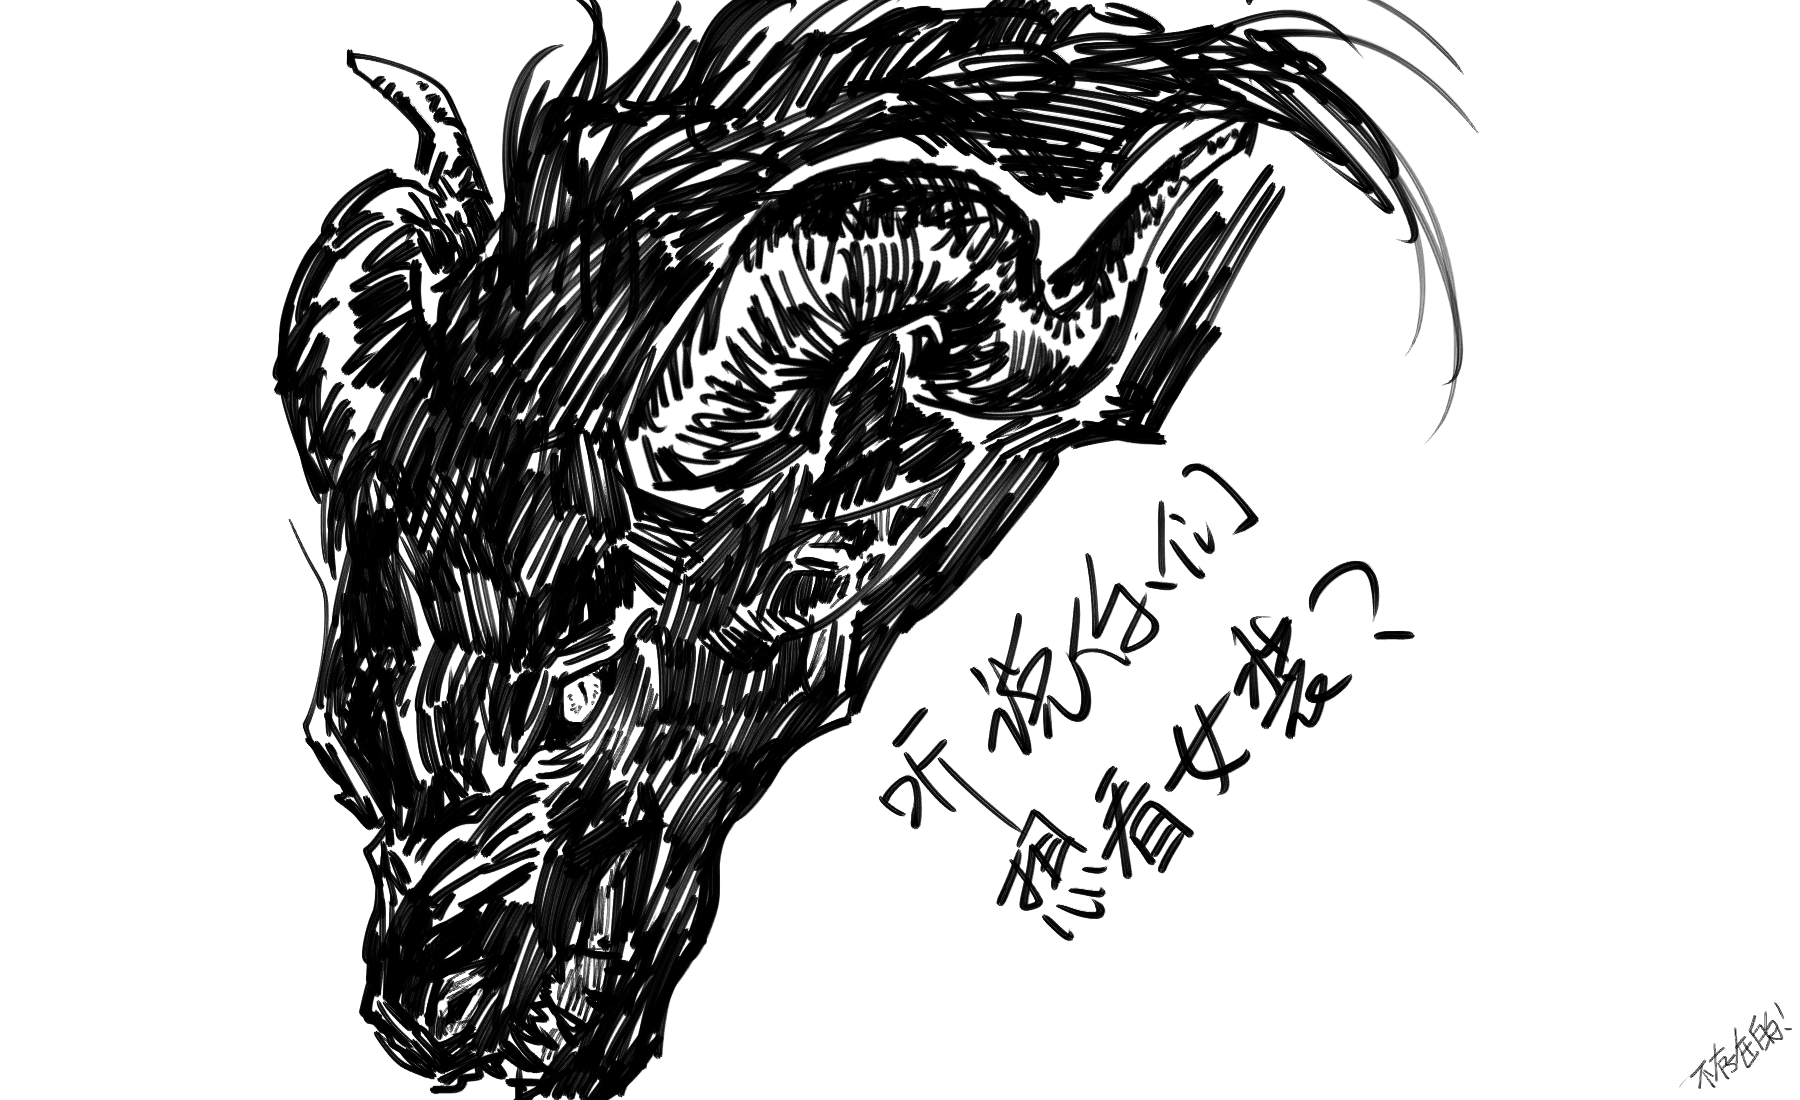 听说你们
想看女装?
不存在的!